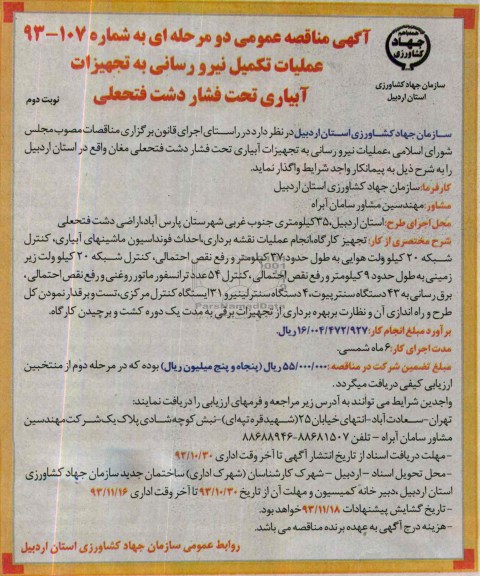 آگهی مناقصه عمومی دو مرحله ای به شماره ۱۰۷-۹۳
عملیات تکمیل نیرو رسانی به تجهیزات
آبیاری تحت فشار دشت فتحعلی
جهاد
کشاورزی
سازمان جهاد کشاورزی
استان اردبیل
نوبت دوم
سازمان جهاد کشاورزی استان اردبیل در نظر دارد در راستای اجرای قانون برگزاری مناقصات مصوب مجلس
شورای اسلامی ،عملیات نیرو رسانی به تجهیزات آبیاری تحت فشار دشت فتحعلی مغان واقع در استان اردبیل
را به شرح ذیل به پیمانکار واجد شرایط واگذار نماید.
کارفرما:سازمان جهاد کشاورزی استان اردبیل
مشاور:مهندسین مشاور سامان آبراه
محل اجرای طرح:استان اردبیل،۳۵کیلومتری جنوب غربی شهرستان پارس آباد،اراضی دشت فتحعلی
شرح مختصری از کار: تجهیز کارگاه،انجام عملیات نقشه برداری،احداث فونداسیون ماشینهای آبیاری، کنترل
شبکه ۲۰ کیلو ولت هوایی به طول حدود ۳۷ کیلومتر و رفع نقص احتمالی، کنترل شبکه ۲۰ کیلو ولت زیر
زمینی به طول حدود ۹ کیلومتر و رفع نقص احتمالی ، کنترل ۵۴ عدد ترانسفورماتور روغنی و رفع نقص احتمالی،
برق رسانی به ۴۳ دستگاه سنتر پیوت،۴ دستگاه سنترلینیر و ۳۱ ایستگاه کنترل مرکزی،تست و برقدار نمودن کل
طرح و راه اندازی آن و نظارت بر بهره برداری از تجهیزات برقی به مدت یک دوره کشت و برچیدن کارگاه.
برآورد مبلغ انجام کار:۱۶/۰۰۴/۴۷۲/۹۲۷ ریال.
مدت اجرای کار:۶ ماه شمسی.
مبلغ تضمین شرکت در مناقصه:۵۵/۰۰۰/۰۰۰ ریال (پنجاه و پنج میلیون ریال) بوده که در مرحله دوم از منتخبین
ارزیابی کیفی دریافت میگردد.
واجدین شرایط می توانند به آدرس زیر مراجعه و فرمهای ارزیابی را دریافت نمایند:
تهران-سعادت آباد-انتهای خیابان ۳۵(شهید قره تپه ای)-نبش کوچه شادی پلاک یک شرکت مهندسین
مشاور سامان آبراه - تلفن ۸۸۶۸۱۵۰۷-۸۸۶۸۸۹۴۶
-مهلت دریافت اسناد از تاریخ انتشار آگهی تا آخر وقت اداری ۹۳/۱۰/۳۰
-محل تحویل اسناد - اردبیل - شهرک کارشناسان (شهرک اداری) ساختمان جدید سازمان جهاد کشاورزی
استان اردبیل ،دبیر خانه کمیسیون و مهلت آن از تاریخ ۹۳/۱۰/۳۰ تا آخر وقت اداری ۹۳/۱۱/۱۶
-تاریخ گشایش پیشنهادات ۹۳/۱۱/۱۸ خواهد بود.
-هزینه درج آگهی به عهده برنده مناقصه می باشد.
روابط عمومی سازمان جهاد کشاورزی استان اردبیل